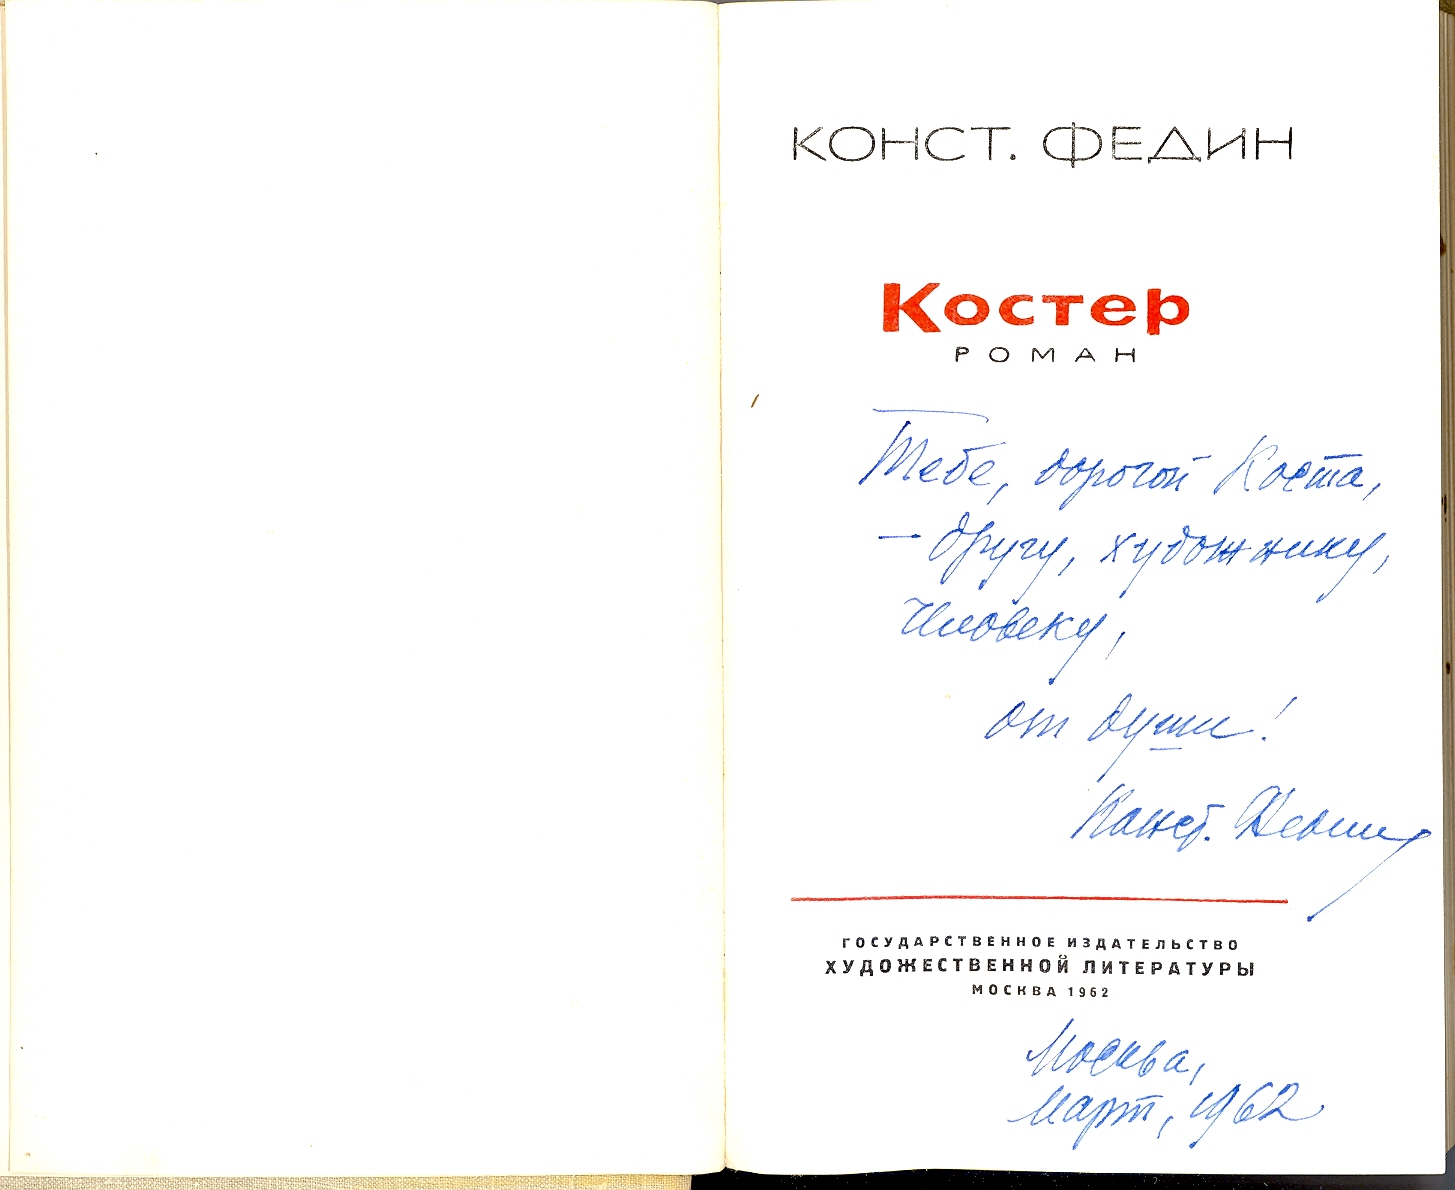 КОНСТ. ФЕДИН
Костер
РОМАН
Тебе, дорогой Коста,
— другу, художнику,
человеку,
от души!
Конст. Федин
ГОСУДАРСТВЕННОЕ ИЗДАТЕЛЬСТВО
ХУДОЖЕСТВЕННОЙ ЛИТЕРАТУРЫ
МОСКВА 1962
Москва,
март, 1962